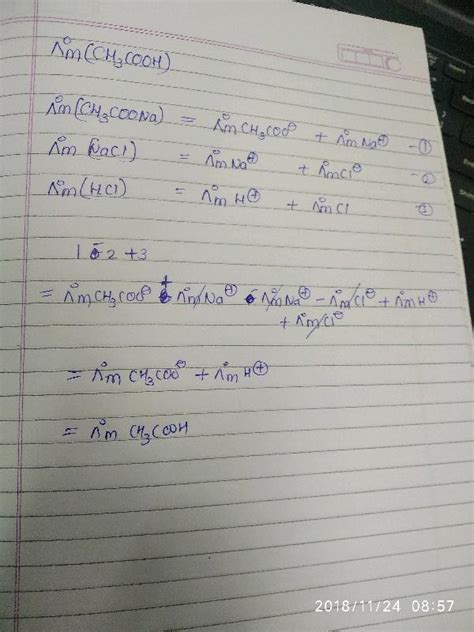 Λ°m (CH₃COOH)
Λ°m (CH₃COONa) = Λ°m CH₃COO⊖ + Λ°m Na⊕ -①
Λ°m (NaCl) = Λ°m Na⊕ + Λ°m Cl⊖ -②
Λ°m (HCl) = Λ°m H⊕ + Λ°m Cl ③
1 - 2 + 3
= Λ°m CH₃COO⊖ + Λ°m Na⊕ - Λ°m Na⊕ - Λ°m Cl⊖ + Λ°m H⊕
+ Λ°m Cl⊖
= Λ°m CH₃COO⊖ + Λ°m H⊕
= Λ°m CH₃COOH
2018/11/24 08:57